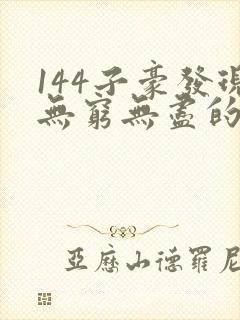 144子豪發現
無窮無盡的
亞歷山德羅尼